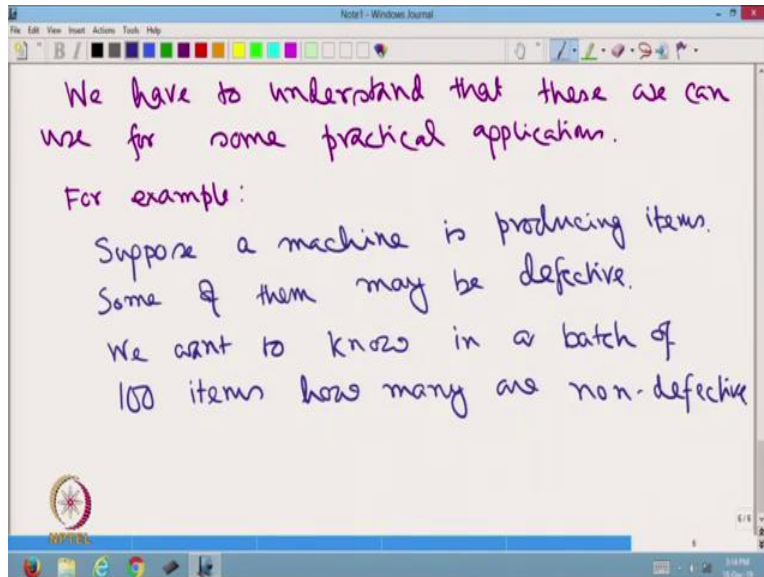 Note1 - Windows Journal
File Edit View Insert Actions Tools Help
We have to understand that these we can
use for some practical applications.
For example:
Suppose a machine is producing items.
Some of them may be defective.
We want to know in a batch of
100 items how many are non-defective
NPTEL
6/6
6
3:14 PM